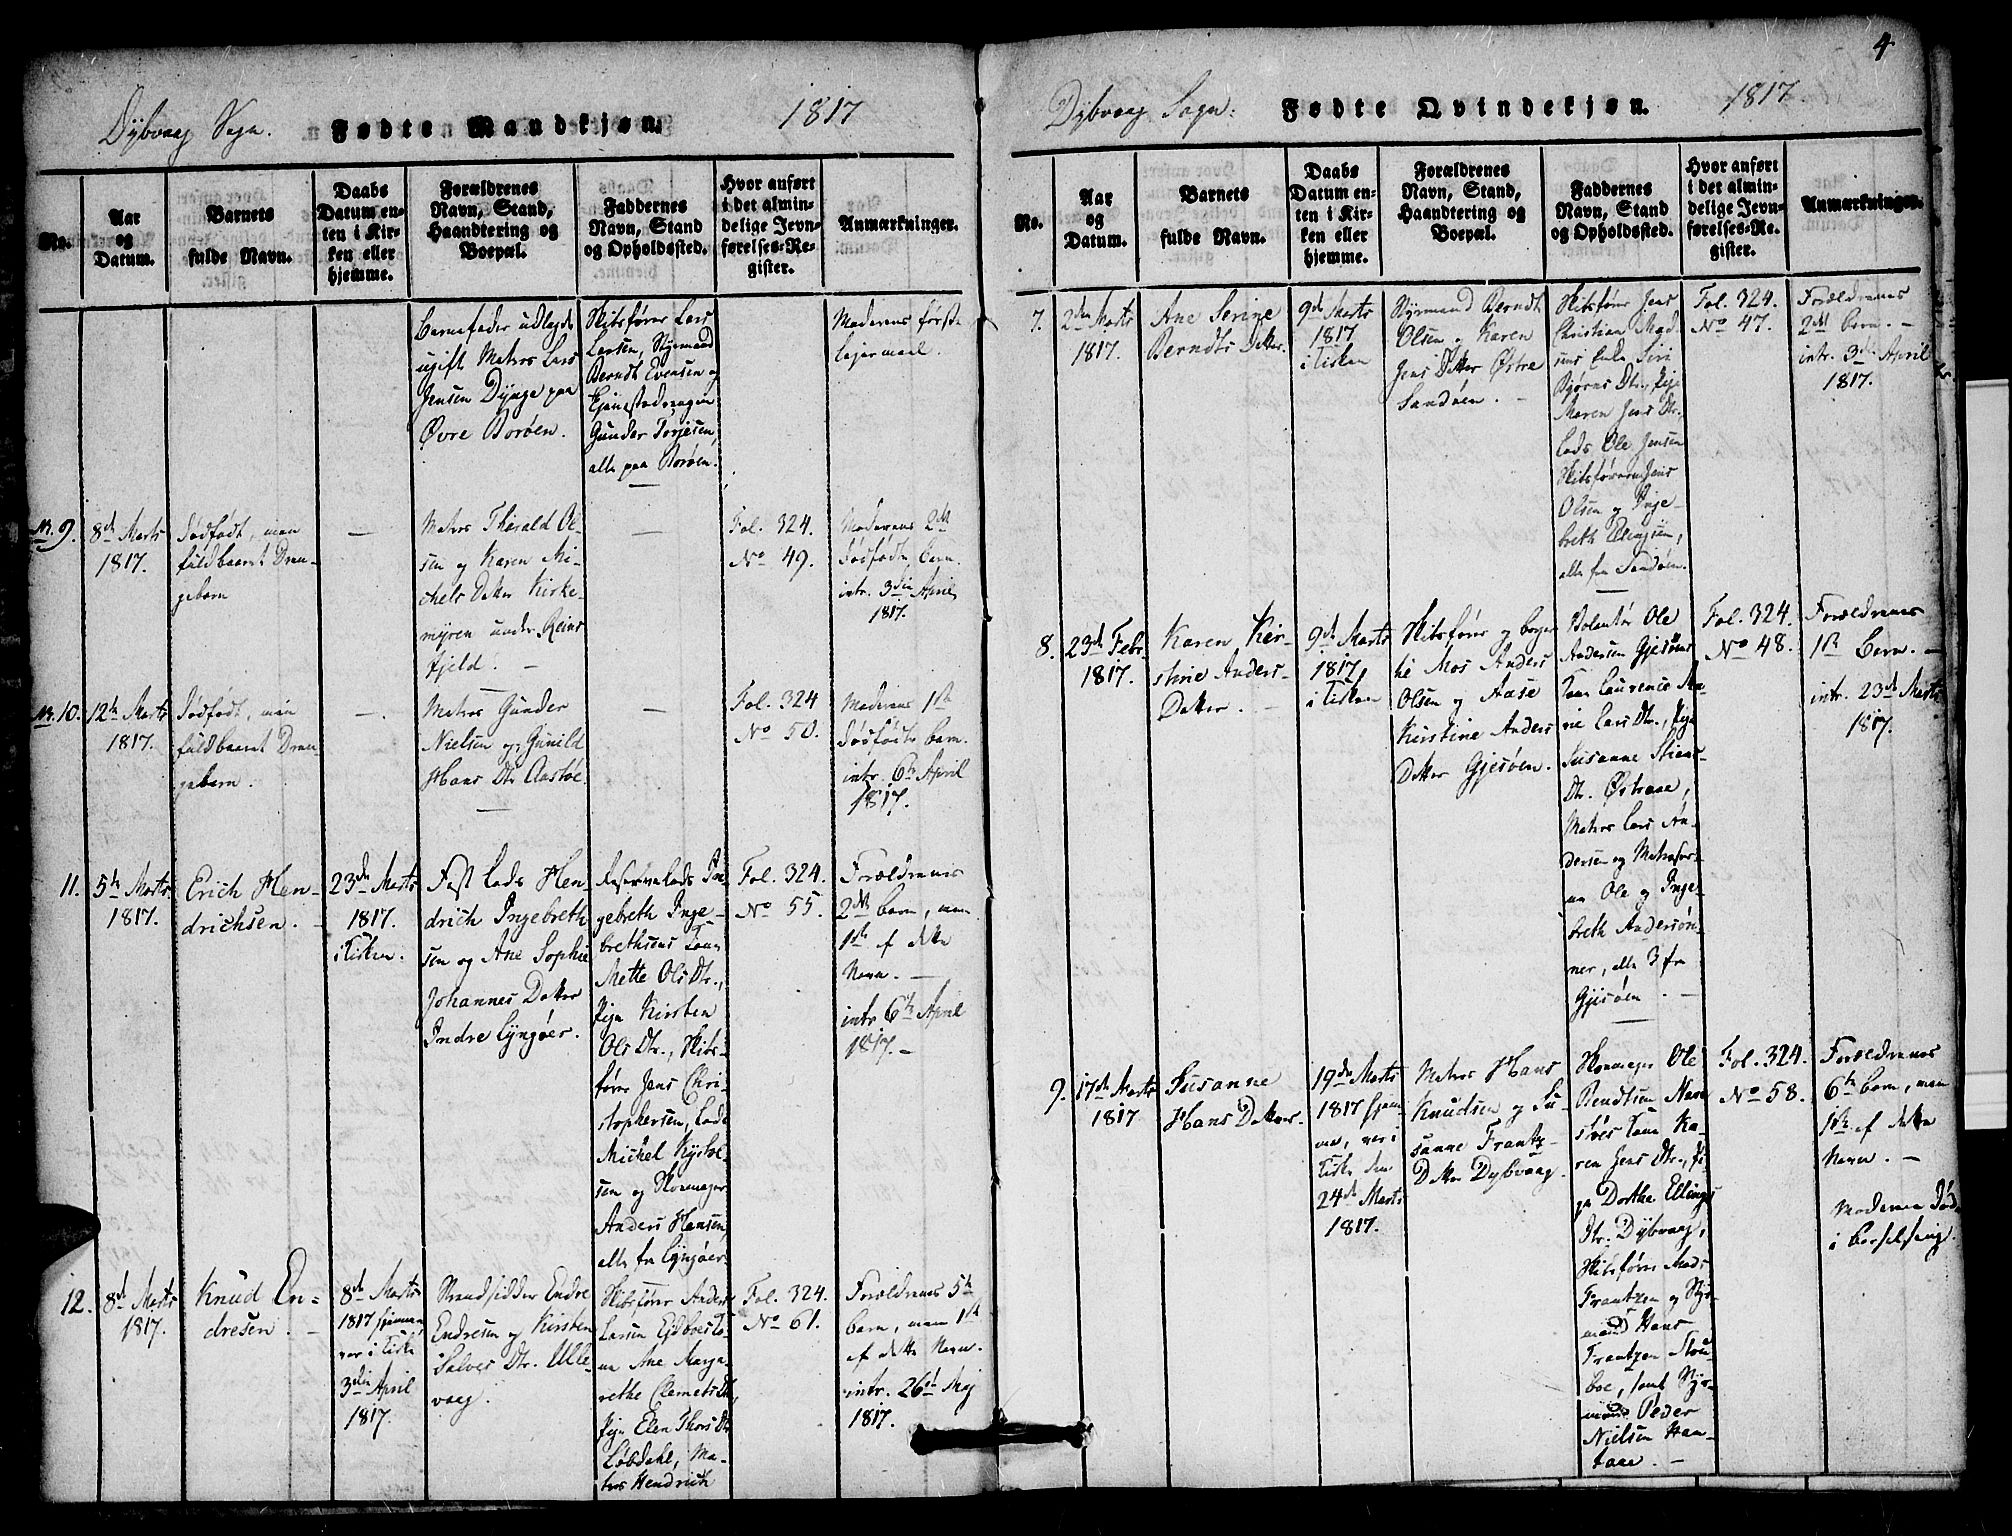 Dybvaag Sogn. Fødte Mandkjøn. 1817
No.
Aar
og
Datum.
Barnets
fulde Navn.
Daabs
Datum en-
ten i Kir-
ken eller
hjemme.
Forældrenes
Navn, Stand,
Haandtering og
Boepæl.
Faddernes
Navn, Stand
og Opholdssted.
Hvor anført
i det almin-
delige Jevn-
førelses-Re-
gister.
Anmærkninger.
Barnefader udlagde
ugift Matros Lars
Jensen Dynge paa
Øvre Borøen.
Skibsfører Lars
Larsen, Styrmand
Berndt Evensen og
Gunder Torjesen,
alle paa Borøen.
Moderens første
Leiermaal.
No. 9.
8de Marts
1817.
Dødfødt, men
fuldbaaret Dren-
gebarn
—
Matros Tharald Ol-
sen og Karen Mi-
chels Datter Kirke-
myren under Reins
fjeld. —
—
Fol. 324.
No 49.
Moderens 2det
dødfødte Barn.
intr. 3die April
1817.
No. 10.
12te Marts
1817.
Dødfødt, men
fuldbaaret Dren-
gebarn.
—.
Matros Gunder
Nielsen og Gunild
Hans Dtr. Aastøe.
—
Fol. 324
No 50.
Moderens 1ste
dødfødte barn.
intr. 6te April
1817.
11.
5te Marts
1817.
Erich Hen-
drichsen. —
23de Marts
1817.
i Kirken.
Fast Lods Hen-
drich Ingebreth
sen og Ane Sophie
Johannes Datter
Indre Lyngøer.
Reservelods In-
gebreth Inge-
brethsens Kone
Mette Ols Dtr.,
Pige Kirsten
Ols Dtr., Skibs-
fører Jens Chri
stophersen, Lods
Michel
sen og Skomager
Anders Hansen,
alle fra Lyngøer.
Fol. 324.
No 55.
Forældrenes
2det barn, men
1ste af dette
Navn. —
intr. 6te April
1817. —
12.
8de Marts
1817.
Knud En-
dresen. —
8de Marts
1817 hjemme,
var i Kirke
3die April
1817.
Strandsidder Endre
Endresen og Kirsten
Salves Dtr. Ulle-
vaag.
Skibsfører Anders
Larsen Eidboes Ko-
ne Ane Marga-
rethe Clemets Dtr,
Pige Elen Thors Dtr
Løbdahl, Ma-
tros Hendrich
Fol. 324.
No 61.
Forældrenes 5te
barn, men 1ste
af dette Navn.
intr. 26de Maj
1817.
4
Dybvaag Sogn: Fødte Qvindekjøn. 1817.
No.
Aar
og
Datum.
Barnets
fulde Navn.
Daabs
Datum en-
ten i Kir-
ken eller
hjemme.
Forældrenes
Navn, Stand,
Haandtering og
Boepæl.
Faddernes
Navn, Stand
og Opholdssted.
Hvor anført
i det almin-
delige Jevn-
førelses-Re-
gister.
Anmærkninger.
7.
2den Marts
1817.
Ane Serine
Berndts Datter.
9de Marts
1817
i Kirken
Styrmand Berndt
Olsen og Karen
Jens Datter Østre
Sandøen. —
Skibsfører Jens
Christian Mad
sens Enke Siri
Bjørns Dtr., Pige
Maren Jens Dtr.
Lods Ole Jensen
Skibsførerne Jens
Olsen og Inge-
breth Ellingsen,
alle fra Sandøen.
Fol. 324.
No 47.
Forældrenes
2det barn. —
intr. 3die April
1817.
8.
23de Febr.
1817.
Karen Kir-
stine Anders-
Datter. —
9de Marts
1817,
i Kirken
Skibsfører og borger
til Mos Anders
Olsen og Aase
Kirstine Anders
Datter Gjesøen.
Volontør Ole
Andersen Gjesøens
Kone Laurence Ma-
rie Lars Dtr., Pige
Susanne Stians
Dtr. Østeraae,
Matros Lars An-
dersen og Matroser-
ne Ole og Inge-
breth Andersøn-
ner, alle 3 fra
Gjesøen. —
Fol. 324.
No 48.
Forældrenes
1ste Barn. —
intr. 23de Marts
1817.
9.
17de Marts
1817
Susanne
Hans Datter.
19de Marts
1817 hjem-
me, var i
Kirke den
24de Marts
1817.
Matros Hans
Knudsen og Su-
sanne Frantz-
Datter Dybvaag.
Skomager Ole
Bendtsen
Kone Ka-
ren Jens Dtr., Pi-
ge Dorthe Ellings
Dtr. Dybvaag,
Skibsfører Mads
Frantzen og Styr-
mand Hans
Frantzen
boe, samt Styr-
mand Peder
Nielsen Han-
taae. —
Fol. 324.
No 58.
Forældrenes
6te barn, men
1ste af dette
Navn. —
Moderen død
i Barselseng.